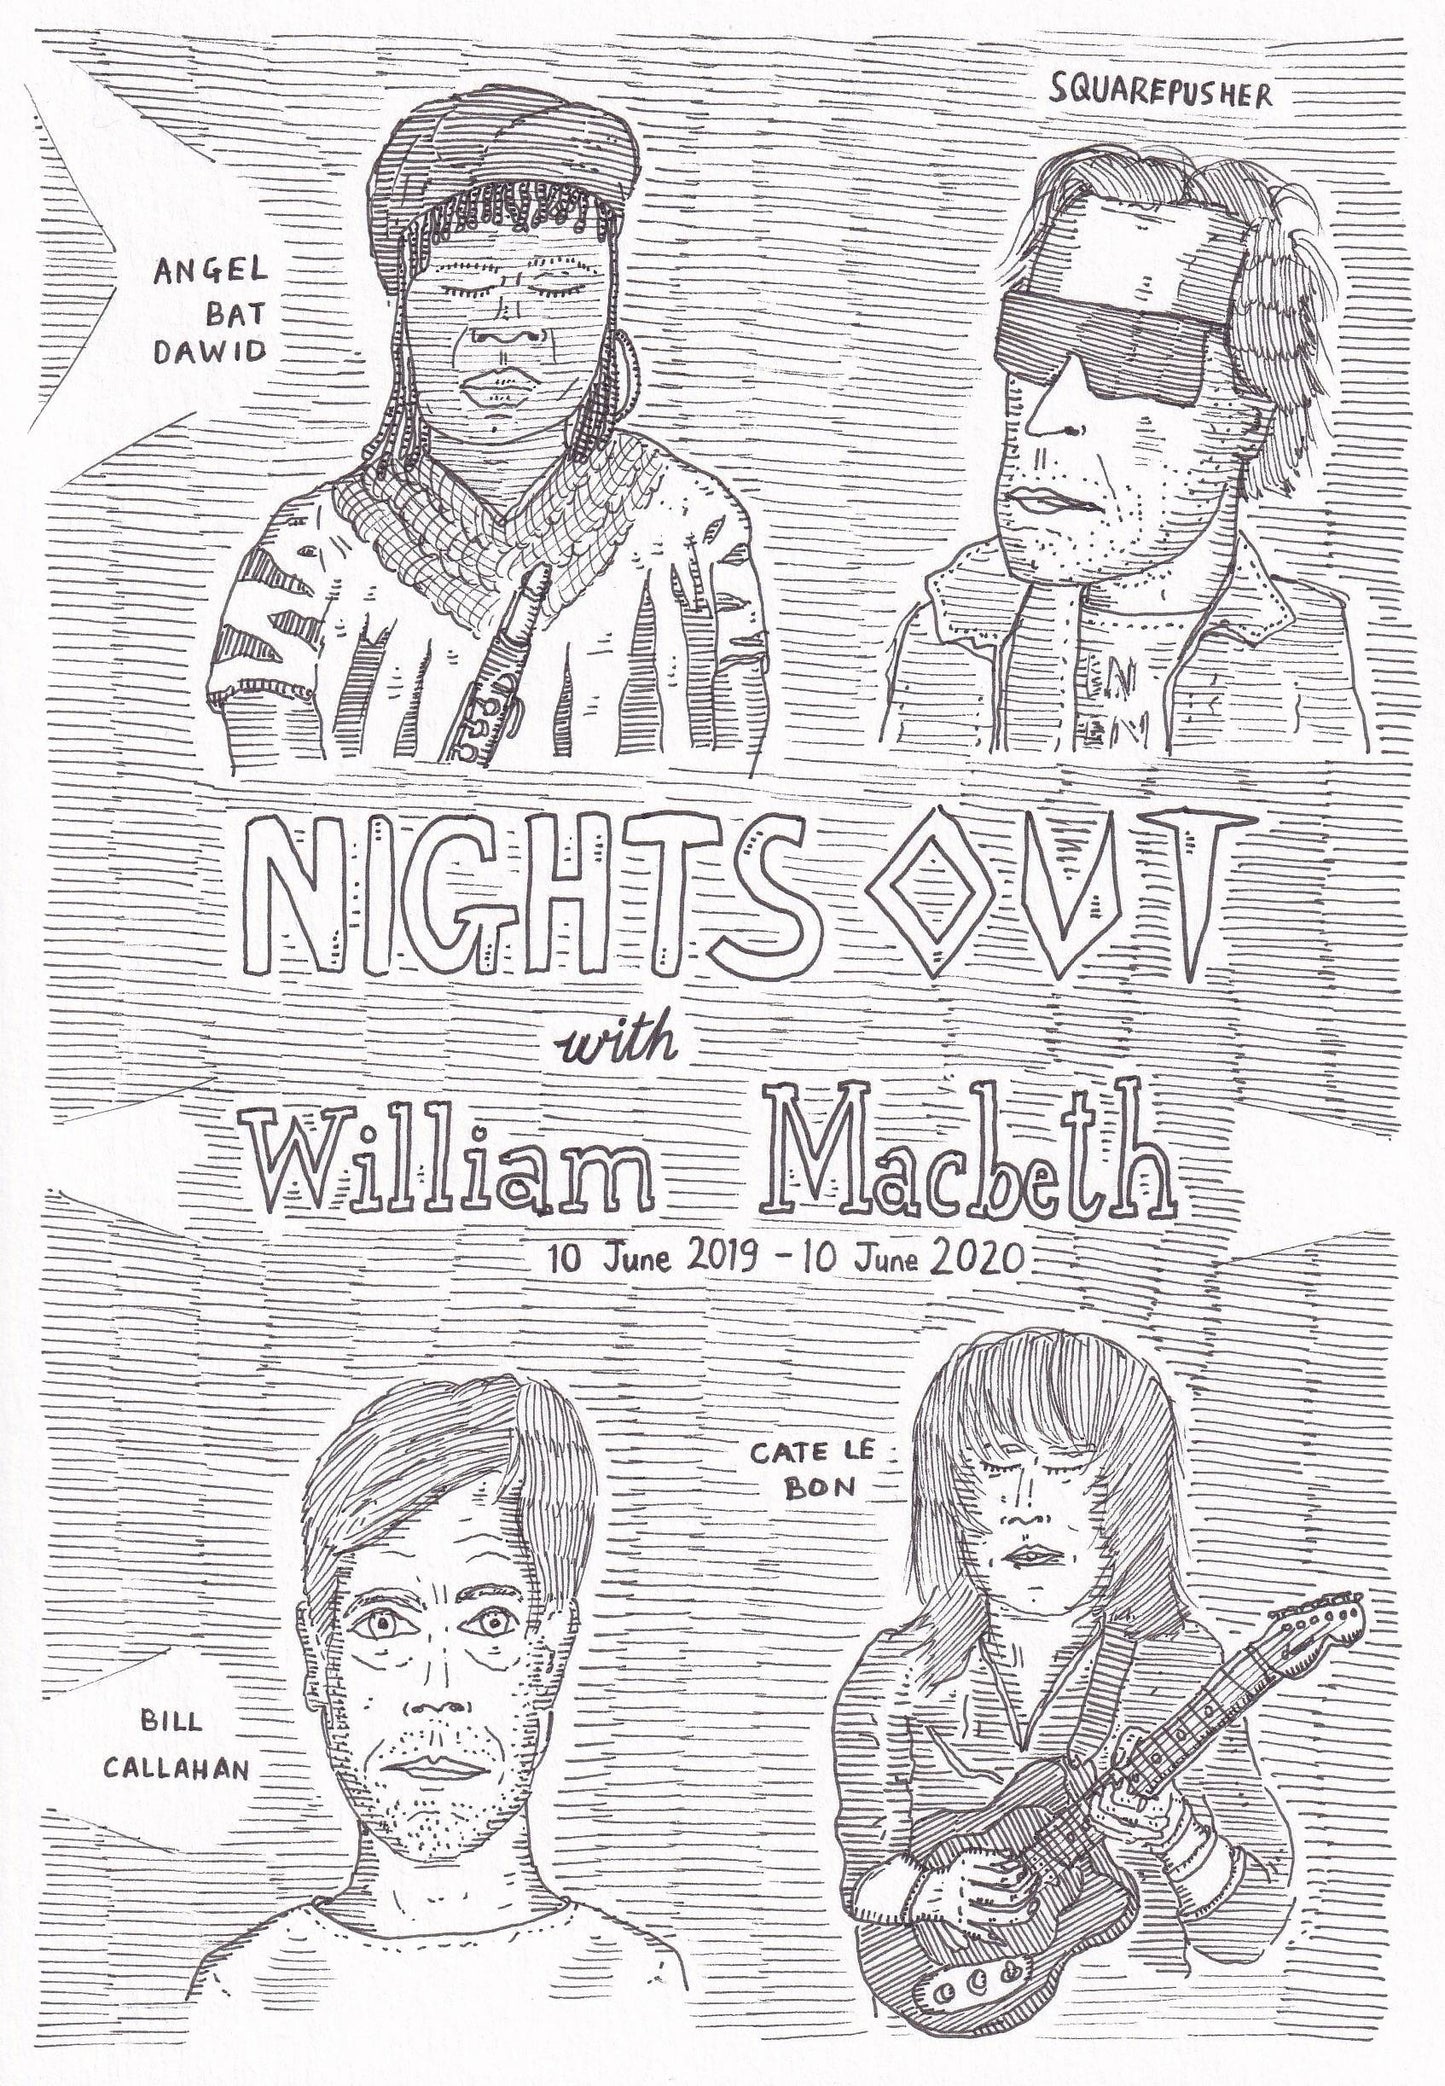 SQUAREPUSHER
ANGEL
BAT
DAWID
NIGHTS OUT
with
William Macbeth
10 June 2019 - 10 June 2020
CATE LE
BON
BILL
CALLAHAN